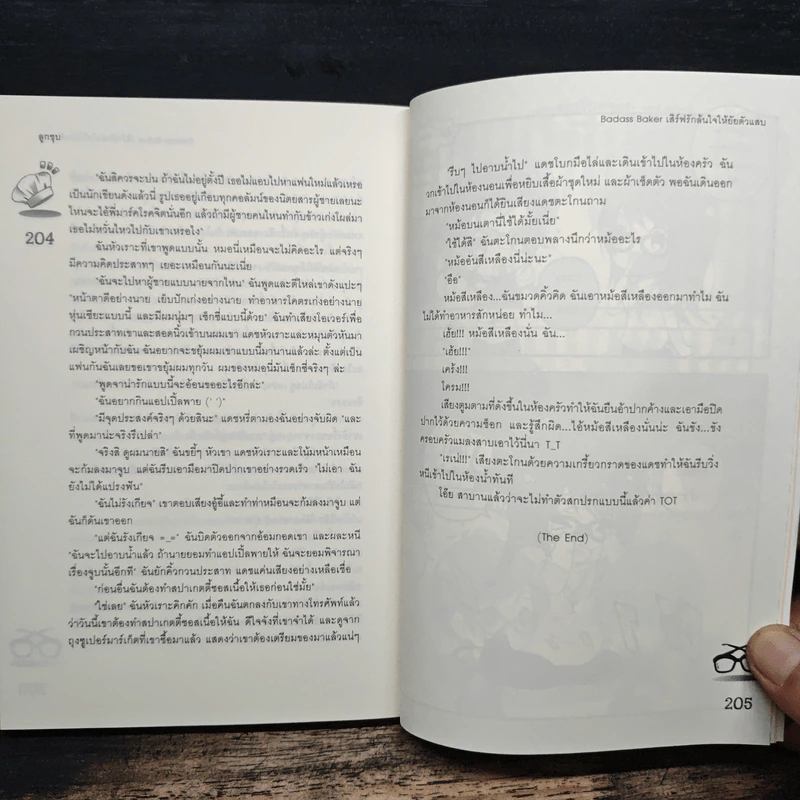 ลูกชุบ
204
"ฉันสิควรจะบ่น ถ้าฉันไม่อยู่ตั้งปี เธอไม่แอบไปหาแฟนใหม่แล้วเหรอ
เป็นนักเขียนดังแล้วนี่ รูปเธออยู่เกือบทุกคอลัมน์ของนิตยสารผู้ชายเลยนะ
ไหนจะไอ้พี่มาร์คโรคจิตนั่นอีก แล้วถ้ามีผู้ชายคนไหนทำกับข้าวเก่งโผล่มา
เธอไม่หวั่นไหวไปกับเขาเหรอไง"
ฉันหัวเราะที่เขาพูดแบบนั้น หมอนี่เหมือนจะไม่คิดอะไร แต่จริงๆ
มีความคิดประสาทๆ เยอะเหมือนกันนะเนี่ย
"ฉันจะไปหาผู้ชายแบบนายจากไหน" ฉันพูดและตีไหล่เขาดังแปะๆ
"หน้าตาดีอย่างนาย เย็บปักเก่งอย่างนาย ทำอาหารโคตรเก่งอย่างนาย
หุ่นเซียะแบบนี้ และมีผมนุ่มๆ เซ็กซี่แบบนี้ด้วย" ฉันทำเสียงโอเวอร์เพื่อ
กวนประสาทเขาและสอดนิ้วเข้าบนผมเขา แดชหัวเราะและหมุนตัวหันมา
เผชิญหน้ากับฉัน ฉันอยากจะขยุ้มผมเขาแบบนี้มานานแล้วล่ะ ตั้งแต่เป็น
แฟนกันฉันเลยขอเขาขยุ้มผมทุกวัน ผมของหมอนี่มันเซ็กซี่จริงๆ ล่ะ
"พูดจาน่ารักแบบนี้จะอ้อนขออะไรอีกล่ะ"
"ฉันอยากกินแอปเปิ้ลพาย (' ')"
"มีจุดประสงค์จริงๆ ด้วยสินะ" แดชหรี่ตามองฉันอย่างจับผิด "และ
ที่พูดมาน่ะจริงรึเปล่า"
"จริงสิ ดูผมนายสิ" ฉันขยี้ๆ หัวเขา แดชหัวเราะและโน้มหน้าเหมือน
จะก้มลงมาจูบ แต่ฉันรีบเอามือมาปิดปากเขาอย่างรวดเร็ว "ไม่เอา ฉัน
ยังไม่ได้แปรงฟัน"
"ฉันไม่รังเกียจ" เขาตอบเสียงอู้อี้และทำท่าเหมือนจะก้มลงมาจูบ แต่
ฉันก็ดันเขาออก
"แต่ฉันรังเกียจ =_=" ฉันบิดตัวออกจากอ้อมกอดเขา และผละหนี
"ฉันจะไปอาบน้ำแล้ว ถ้านายยอมทำแอปเปิ้ลพายให้ ฉันจะยอมพิจารณา
เรื่องจูบนั้นอีกที" ฉันยักคิ้วกวนประสาท แดชแค่นเสียงอย่างเหลือเชื่อ
"ก่อนอื่นฉันต้องทำสปาเกตตี้ซอสเนื้อให้เธอก่อนใช่มั้ย"
"ใช่เลย" ฉันหัวเราะคิกคัก เมื่อคืนฉันตกลงกับเขาทางโทรศัพท์แล้ว
ว่าวันนี้เขาต้องทำสปาเกตตี้ซอสเนื้อให้ฉัน ดีใจจังที่เขาจำได้ และดูจาก
ถุงซูเปอร์มาร์เก็ตที่เขาซื้อมาแล้ว แสดงว่าเขาต้องเตรียมของมาแล้วแน่ๆ
Badass Baker เสิร์ฟรักล้นใจให้ยัยตัวแสบ
"รีบๆ ไปอาบน้ำไป" แดชโบกมือไล่และเดินเข้าไปในห้องครัว ฉัน
วกเข้าไปในห้องนอนเพื่อหยิบเสื้อผ้าชุดใหม่ และผ้าเช็ดตัว พอฉันเดินออก
มาจากห้องนอนก็ได้ยินเสียงแดชตะโกนถาม
"หม้อบนเตานี่ใช้ได้มั้ยเนี่ย"
"ใช้ได้สิ" ฉันตะโกนตอบพลางนึกว่าหม้ออะไร
"หม้ออันสีเหลืองนี่น่ะนะ"
"อือ"
หม้อสีเหลือง...ฉันขมวดคิ้วคิด ฉันเอาหม้อสีเหลืองออกมาทำไม ฉัน
ไม่ได้ทำอาหารสักหน่อย ทำไม...
เฮ้ย!!! หม้อสีเหลืองนั่น ฉัน...
"เฮ้ย!!!"
เคร้ง!!!
โครม!!!
เสียงตูมตามที่ดังขึ้นในห้องครัวทำให้ฉันยืนอ้าปากค้างและเอามือปิด
ปากไว้ด้วยความช็อก และรู้สึกผิด...ไอ้หม้อสีเหลืองนั่นน่ะ ฉันขัง...ขัง
ครอบครัวแมลงสาบเอาไว้นี่นา T_T
"เรเน่!!!" เสียงตะโกนด้วยความเกรี้ยวกราดของแดชทำให้ฉันรีบวิ่ง
หนีเข้าไปในห้องน้ำทันที
โอ๊ย สาบานแล้วว่าจะไม่ทำตัวสกปรกแบบนี้แล้วค่า TOT
(The End)
205